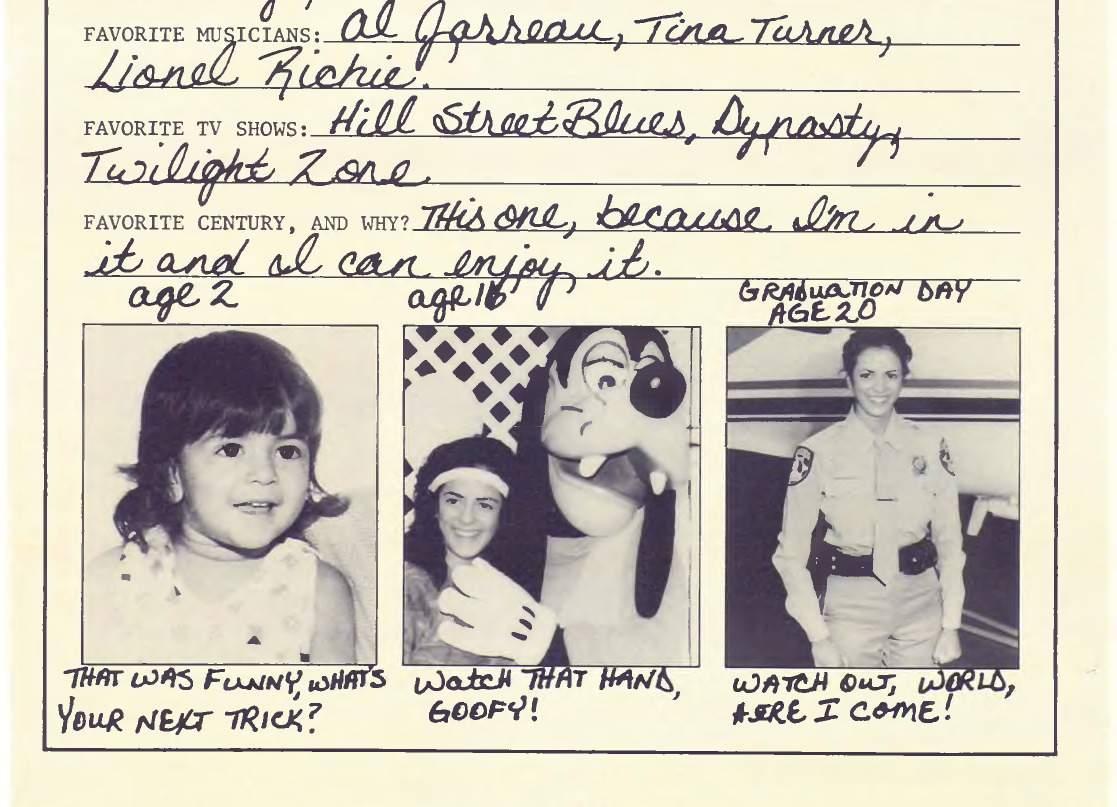 FAVORITE MUSICIANS: Al Jarreau, Tina Turner,
Lionel Richie.
FAVORITE TV SHOWS: Hill Street Blues, Dynasty,
Twilight Zone
FAVORITE CENTURY, AND WHY? THis one, because I'm in
it and I can enjoy it.
age 2
age 16
GRADUATION DAY
AGE 20
THAT WAS FUNNY, WHAT'S
YOUR NEXT TRICK?
WATCH THAT HAND,
GOOFY!
WATCH OUT, WORLD,
HERE I COME!